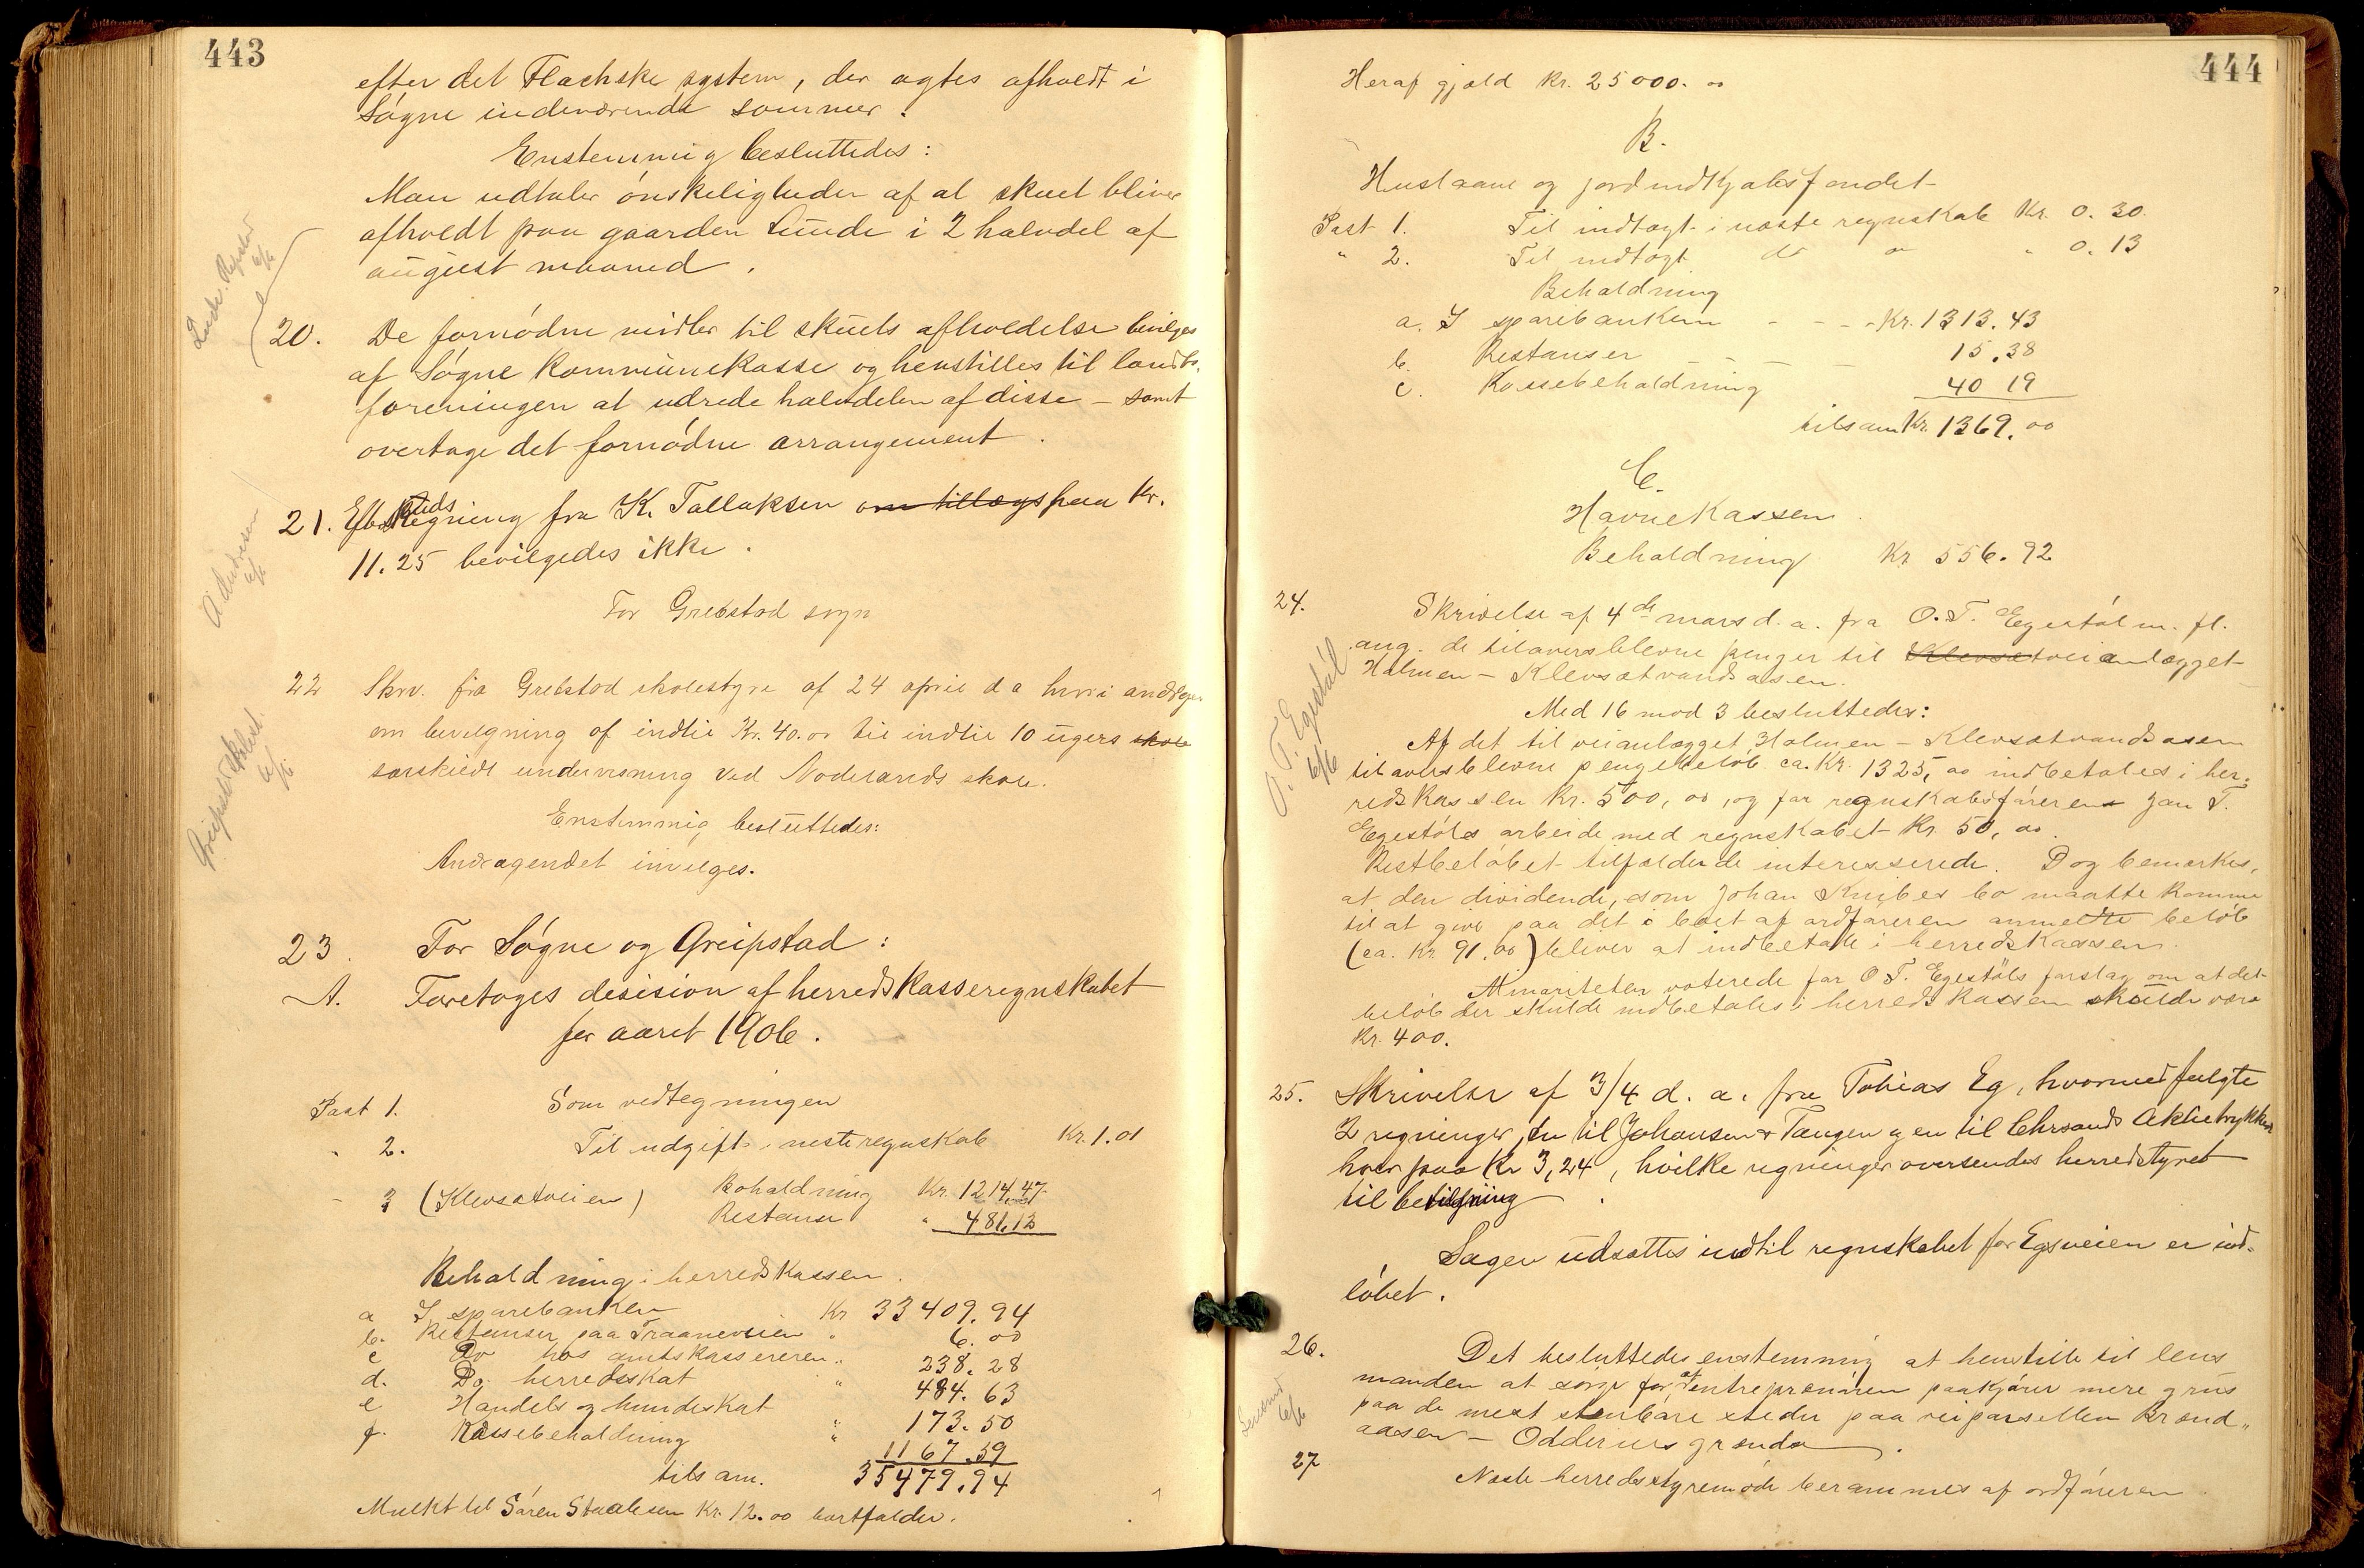 443
efter det Flachske system, der agtes afholdt i
Søgne indeværende sommer.
Enstemmig besluttedes:
Man udtaler ønskeligheden af at skuet bliver
afholdt paa gaarden Lunde i 2 halvdel af
august maaned.
20. De fornødne midler til skuets afholdelse bevilges
af Søgne kommunekasse og henstilles til landb.
foreningen at udrede halvdelen af disse – samt
overtage det fornødne arrangement.
21. Efterskuds Regning fra K. Tallaksen om tillægs paa Kr.
11.25 bevilgedes ikke.
A. Andresen
6/6
For Grebstad sogn
22 Skriv. fra Grebstad skolestyre af 24 april d a hvori andrages
om bevilgning af indtil Kr. 40.00 til indtil 10 ugers skole
særskildt undervisning ved Nodelands skole.
Greipstad skolest.
6/6
Enstemmig besluttedes:
Andragendet invilges.
23. For Søgne og Greipstad:
A. Foretoges desision af herredskasseregnskabet
for aaret 1906.
Post 1. Som vedtegningen
" 2. Til udgift i neste regnskab Kr. 1.01
" 3 (Klevsatveien) Behaldning Kr. 1214.47
Restanse " 481.12
Behaldning i herredskassen.
a I sparebanken Kr 33409.94
b. Restanser paa Traaneveien " 6.00
c Do hos amtskassereren " 238.28
d. Do. herredsskat " 484.63
e Handels og hundeskat " 173.50
f. Kassebehaldning " 1167.59
tilsam. 35479.94
Mulkt til Søren Staalesen Kr. 12.00 bortfalder.
444
Heraf gjæld Kr. 25000.00
B.
Huslaane og jordindkjøbsfondet
Post 1. Til indtægt i næste regnskab Kr. 0.30.
" 2. Til indtægt do " " 0.13
Behaldning
a. I sparebanken - - - Kr. 1313.43
b. Restanser – – 15.38
c. Kassebehaldning 40 19
tilsam Kr. 1369.00
C.
Havnekassen.
Behaldning Kr 556.92
24. Skrivelse af 4de mars d. a. fra O. T. Egestøl m. fl.
ang. de tiloversblevne penger til Klevsatveianlægget
Holmen – Klevsatvandsasen.
O. T. Egestøl
6/6
Med 16 mod 3 besluttedes:
Af det til veianlægget Holmen – Klevsatvandsasen
tiloversblevne pengebeløb ca. Kr. 1325,00 indbetales i her-
redskassen Kr. 500,00, og for regnskabsføreren Jan T.
Egestøls arbeide med regnskabet Kr. 50,00.
Restbeløbet tilfalder de interesserede. Dog bemærkes,
at den dividende, som Johan Knibes bo maatte komme
til at give paa det i boet af ordføreren anmeldte beløb
(ca. Kr. 91.00) bliver at indbetale i herredskassen.
Minoriteten voterede for O T. Egestøls forslag om at det
beløb der skulde indbetales i herredskassen skulde være
Kr. 400.
25. Skrivelse af 3/4 d. a. fra Tobias Eg, hvormed fulgte
2 regninger, en til Johansen & Tangen og en til Chrsands Aktietrykkeri
hver paa Kr 3,24, hvilke regninger oversendes herredstyret
til bevilgning.
Sagen udsættes indtil regnskabet for Egsveien er ind-
løbet.
26. Det besluttedes enstemmig at henstille til lens
manden at sørge for at entreprenøren paakjører mere grus
paa de mest stenbare steder paa veiparsellen Brand-
aasen – Odderns grænda.
Lensmand
6/6
27 Næste herredsstyremøde berammes af ordføreren.